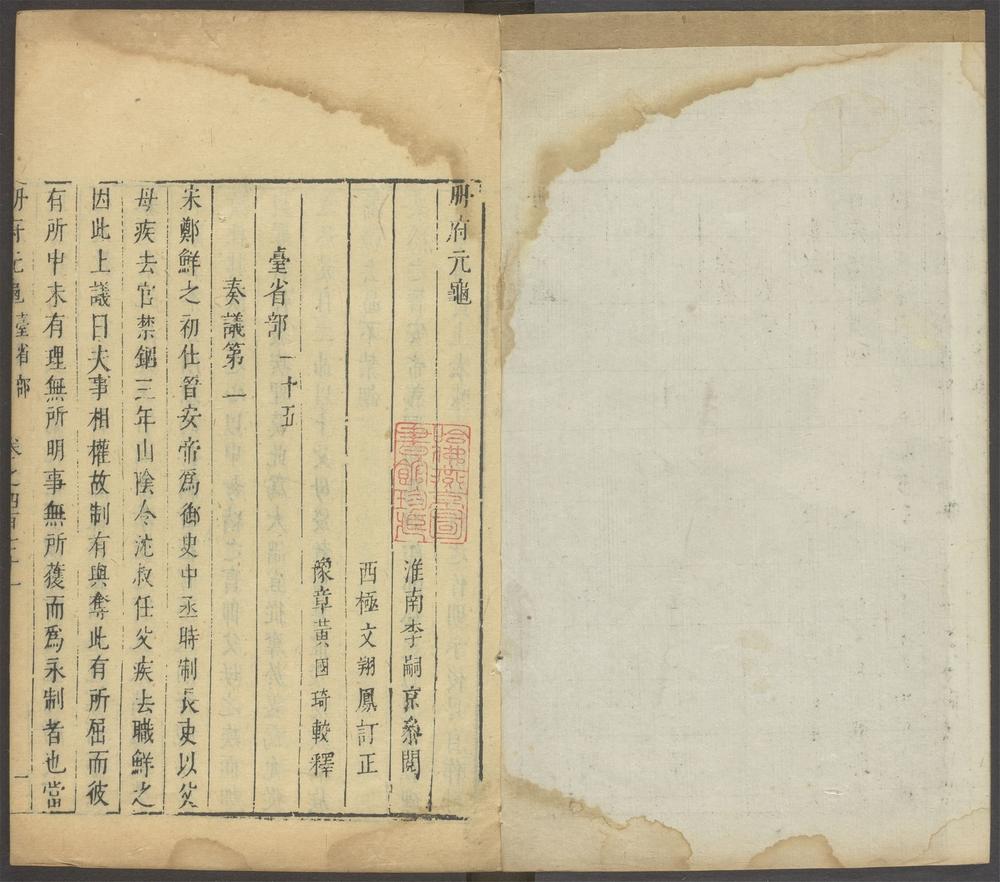 冊府元龜
淮南李嗣京叅閱
西極文翔鳳訂正
豫章黃國琦較釋
臺省部一十五
奏議第一
宋鄭鮮之初仕晉安帝爲御史中丞時制長吏以父
母疾去官禁錮三年山陰令沈叔任父疾去職鮮之
因此上議曰夫事相權故制有與奪此有所屈而彼
有所申未有理無所明事無所獲而爲永制者也當
冊府元龜臺省部
一
哈佛燕京圖書館珍藏